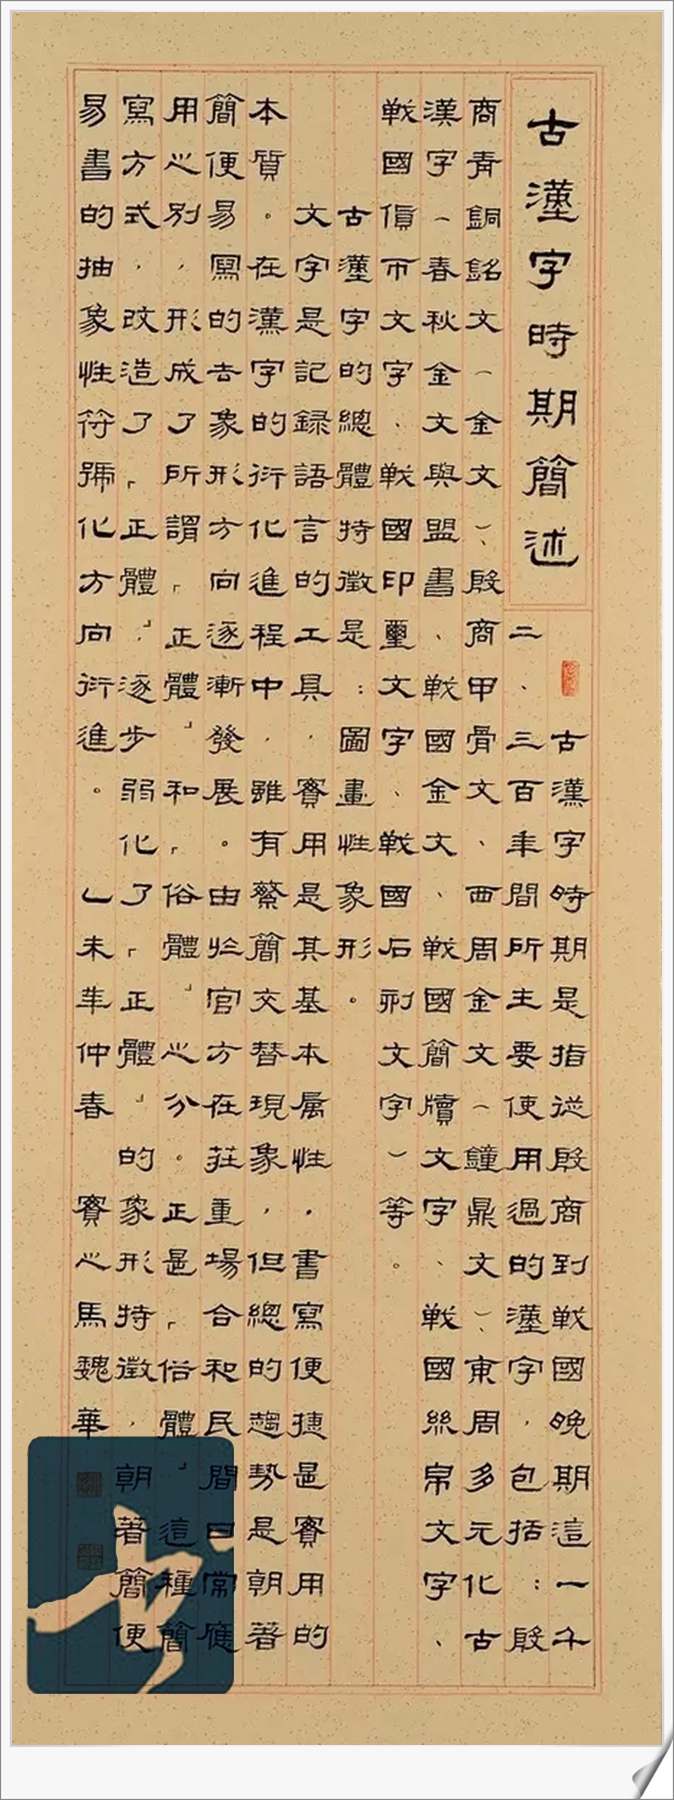 古漢字時期簡述
古漢字時期是指從殷商到戰國晚期這一千
二、三百年間所主要使用過的漢字，包括：殷
商青銅銘文（金文）、殷商甲骨文、西周金文（鐘鼎文）、東周多元化古
漢字（春秋金文與盟書、戰國金文、戰國簡牘文字、戰國絲帛文字、
戰國貨币文字、戰國印璽文字、戰國石刻文字）等。
古漢字的總體特徵是：圖畫性象形。
文字是記録語言的工具，實用是其基本属性，書寫便捷是實用的
本質。在漢字的衍化進程中，雖有繁簡交替現象，但總的趨勢是朝著
簡便易寫的去象形方向逐漸發展。由於官方在莊重場合和民間日常應
用之别，形成了所謂「正體」和「俗體」之分。正是「俗體」這種簡
寫方式，改造了「正體」，逐步弱化了「正體」的象形特徵，朝著簡便
易書的抽象性符號化方向衍進。乙未年仲春 賓之馬魏華